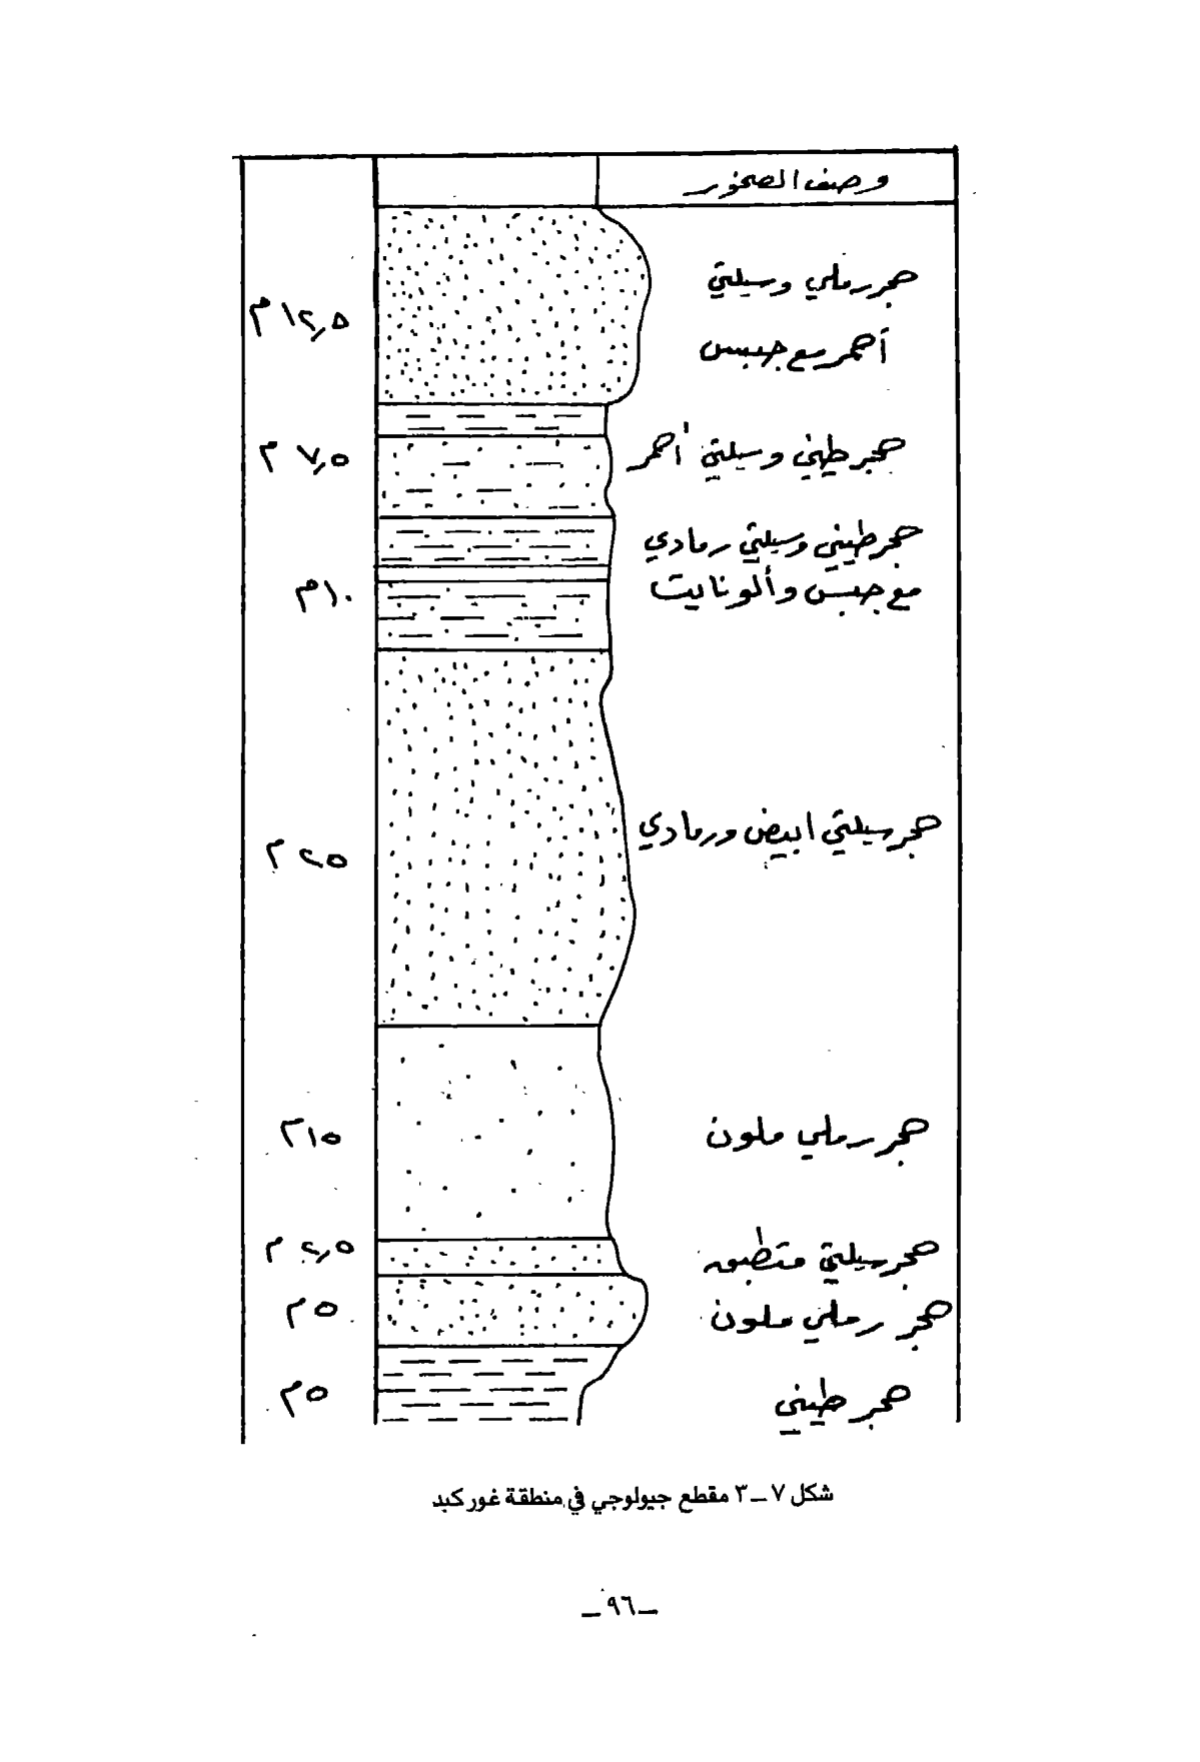 وصف الصخور
حجر رملي وسيلتي
١٢,٥ م
أحمر مع جبس
حجر طيني وسيلتي أحمر
٧,٥ م
حجر طيني وسيلتي رمادي
مع جبس وألونايت
١٠ م
حجر سيلتي ابيض ورمادي
٢٥ م
حجر رملي ملون
١٥ م
حجر سيلتي متطبق
٢,٥ م
حجر رملي ملون
٥ م
حجر طيني
٥ م
شكل ٧ – ٣ مقطع جيولوجي في منطقة غور كبد
– ٩٦ –